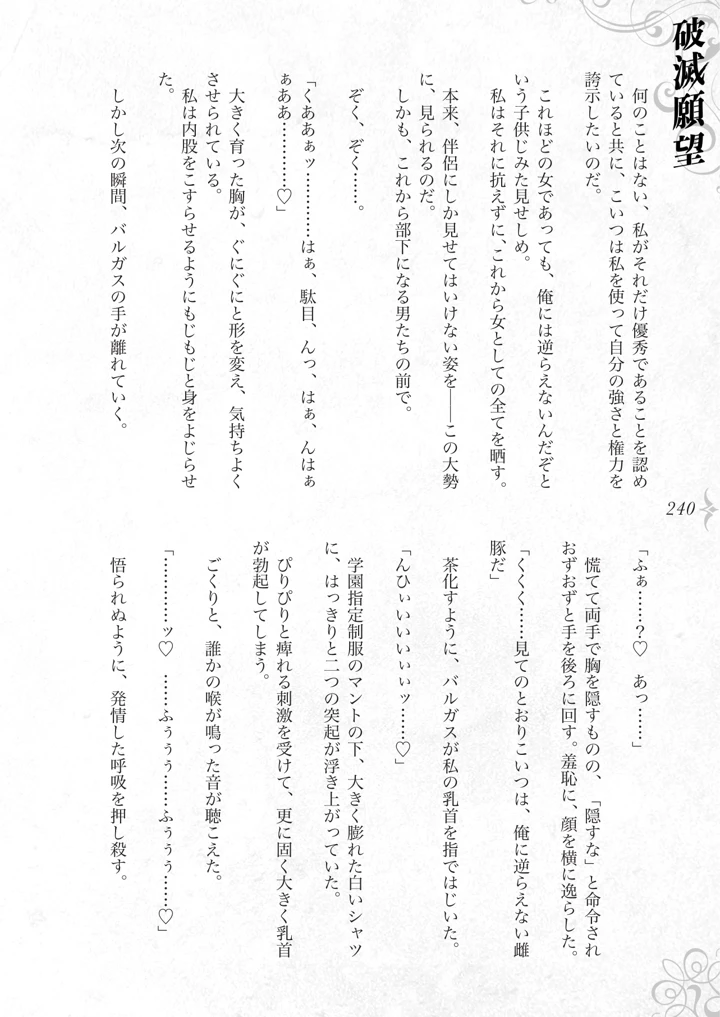 破滅願望
何のことはない、私がそれだけ優秀であることを認め
ていると共に、こいつは私を使って自分の強さと権力を
誇示したいのだ。
これほどの女であっても、俺には逆らえないんだぞと
いう子供じみた見せしめ。
私はそれに抗えずに、これから女としての全てを晒す。
本来、伴侶にしか見せてはいけない姿を――この大勢
に、見られるのだ。
しかも、これから部下になる男たちの前で。
ぞく、ぞく……。
「くああぁッ…………はぁ、駄目、んっ、はぁ、んはぁ
ぁああ…………♡」
大きく育った胸が、ぐにぐにと形を変え、気持ちよく
させられている。
私は内股をこすらせるようにもじもじと身をよじらせ
た。
しかし次の瞬間、バルガスの手が離れていく。
240
「ふぁ……？♡　あっ……」
慌てて両手で胸を隠すものの、「隠すな」と命令され
おずおずと手を後ろに回す。羞恥に、顔を横に逸らした。
「くくく……見てのとおりこいつは、俺に逆らえない雌
豚だ」
茶化すように、バルガスが私の乳首を指ではじいた。
「んひぃいいいぃぃッ……♡」
学園指定制服のマントの下、大きく膨れた白いシャツ
に、はっきりと二つの突起が浮き上がっていた。
ぴりぴりと痺れる刺激を受けて、更に固く大きく乳首
が勃起してしまう。
ごくりと、誰かの喉が鳴った音が聴こえた。
「…………ッ♡　……ふぅぅぅ……ふぅぅぅ……♡」
悟られぬように、発情した呼吸を押し殺す。